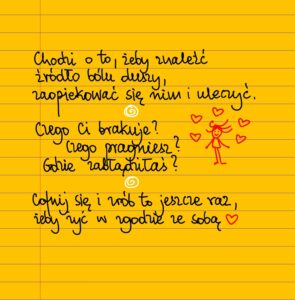 Chodzi o to, żeby znaleźć
źródło bólu duszy,
zaopiekować się nim i uleczyć.
Czego Ci brakuje?
Czego pragniesz?
Gdzie zabłądziłaś?
Cofnij się i zrób to jeszcze raz,
żeby żyć w zgodzie ze sobą